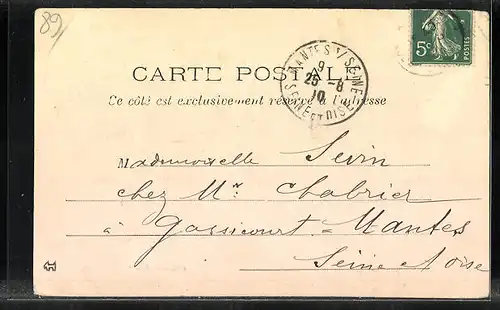 89
5c
POSTES
MANTES S/ SEINE
9
25 - 8
10
SEINE ET OISE
CARTE POSTALE
Ce côté est exclusivement réservé à l'adresse
Mademoiselle Sevin
chez Mr Chabrier
à Gassicourt-Mantes
Seine et oise